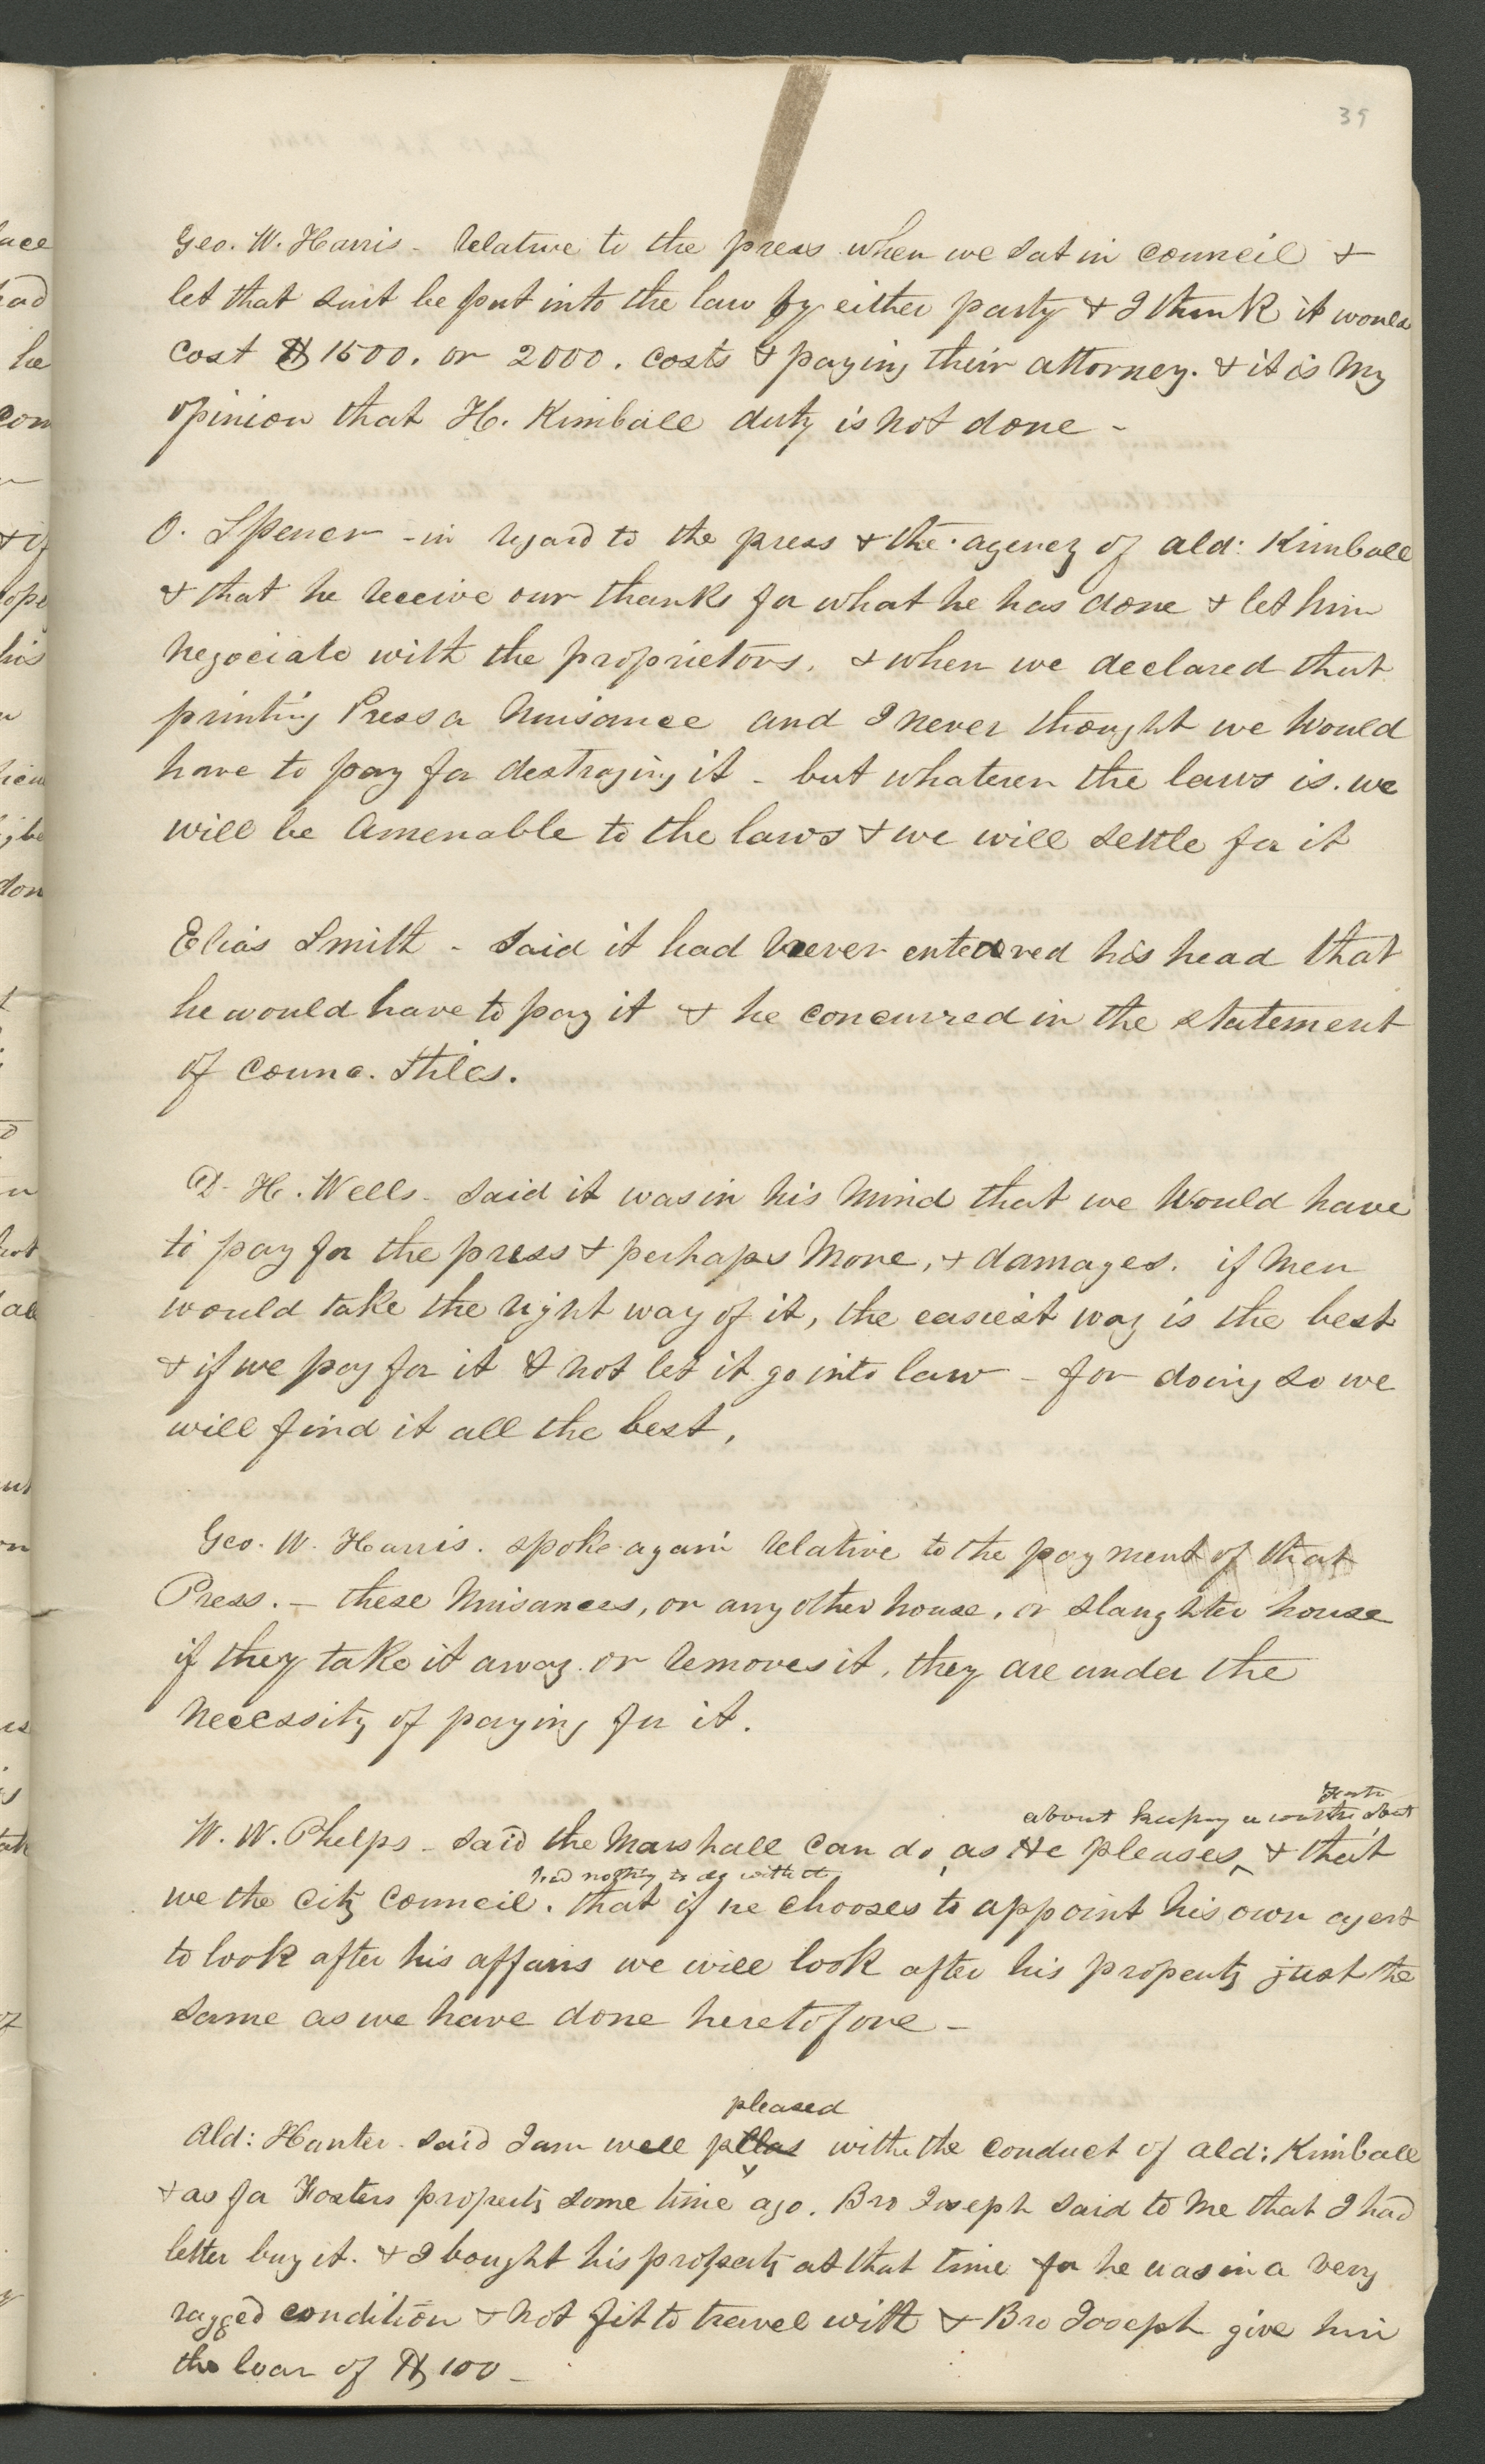 39
Geo. W. Harris - relative to the press when we sat in council &
let that suit be put into the law by either party & I think it would
cost $1500. or 2000. costs & paying their attorney. & it is my
opinion that H. Kimball duty is not done -
O. Spencer - in regard to the press & the agency of ald: Kimball
& that he receive our thanks for what he has done & let him
negociate with the proprietors. & when we declared that
printing Press a nuisance and I never thought we would
have to pay for destroying it - but whatever the laws is. we
will be amenable to the laws & we will settle for it
Elias Smith - said it had never entered his head that
he would have to pay it & he concurred in the statement
of counc. Stiles.
D. H. Wells - said it was in his mind that we would have
to pay for the press & perhaps more, & damages. if men
would take the right way of it, the easiest way is the best
& if we pay for it & not let it go into law - for doing so we
will find it all the best,
Geo. W. Harris. spoke again relative to the payment of that
Press. - these nuisances, or any other house, or slaughter house
if they take it away or removes it, they are under the
necessity of paying for it.
about keeping a
W. W. Phelps - said the Marshall can do, as He pleases & that
had nothing to do with it
we the City Council. that if he chooses to appoint his own agent
to look after his affairs we will look after his property just the
same as we have done heretofore -
pleased
Ald: Hunter - said I am well with the conduct of ald: Kimball
& as for Fosters property some time ago. Bro Joseph said to me that I had
better buy it. & I bought his property at that time for he was in a very
ragged condition & not fit to travel with & Bro Joseph give him
the loan of $100 -